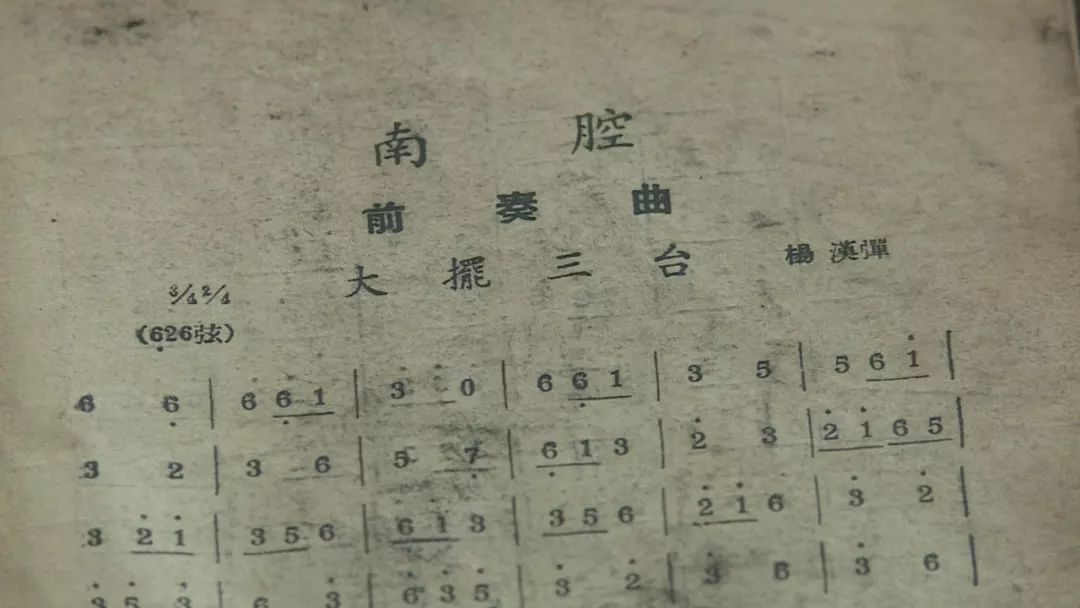 南 腔
前 奏 曲
大 擺 三 台 楊 漢 彈
3/4 2/4
(6̣26弦)
6 6̣ | 6 6̣ 1 | 3 0 | 6 6̣ 1 | 3 5 | 5 6 i |
3 2 | 3 6 | 5 7̣ | 6̣ 1 3 | 2̇ 3 | 2̇ i 6 5 |
3 2̇ i | 3 5 6 | 6 i 3̇ | 3 5 6 | 2̇ i 6 | 3̇ 2̇ |
3̇ 5̇ 3̇ | 6 3̇ | 6 3̇ 5̇ | 3̇ 2̇ | 3̇ 6 | 3̇ 6 |